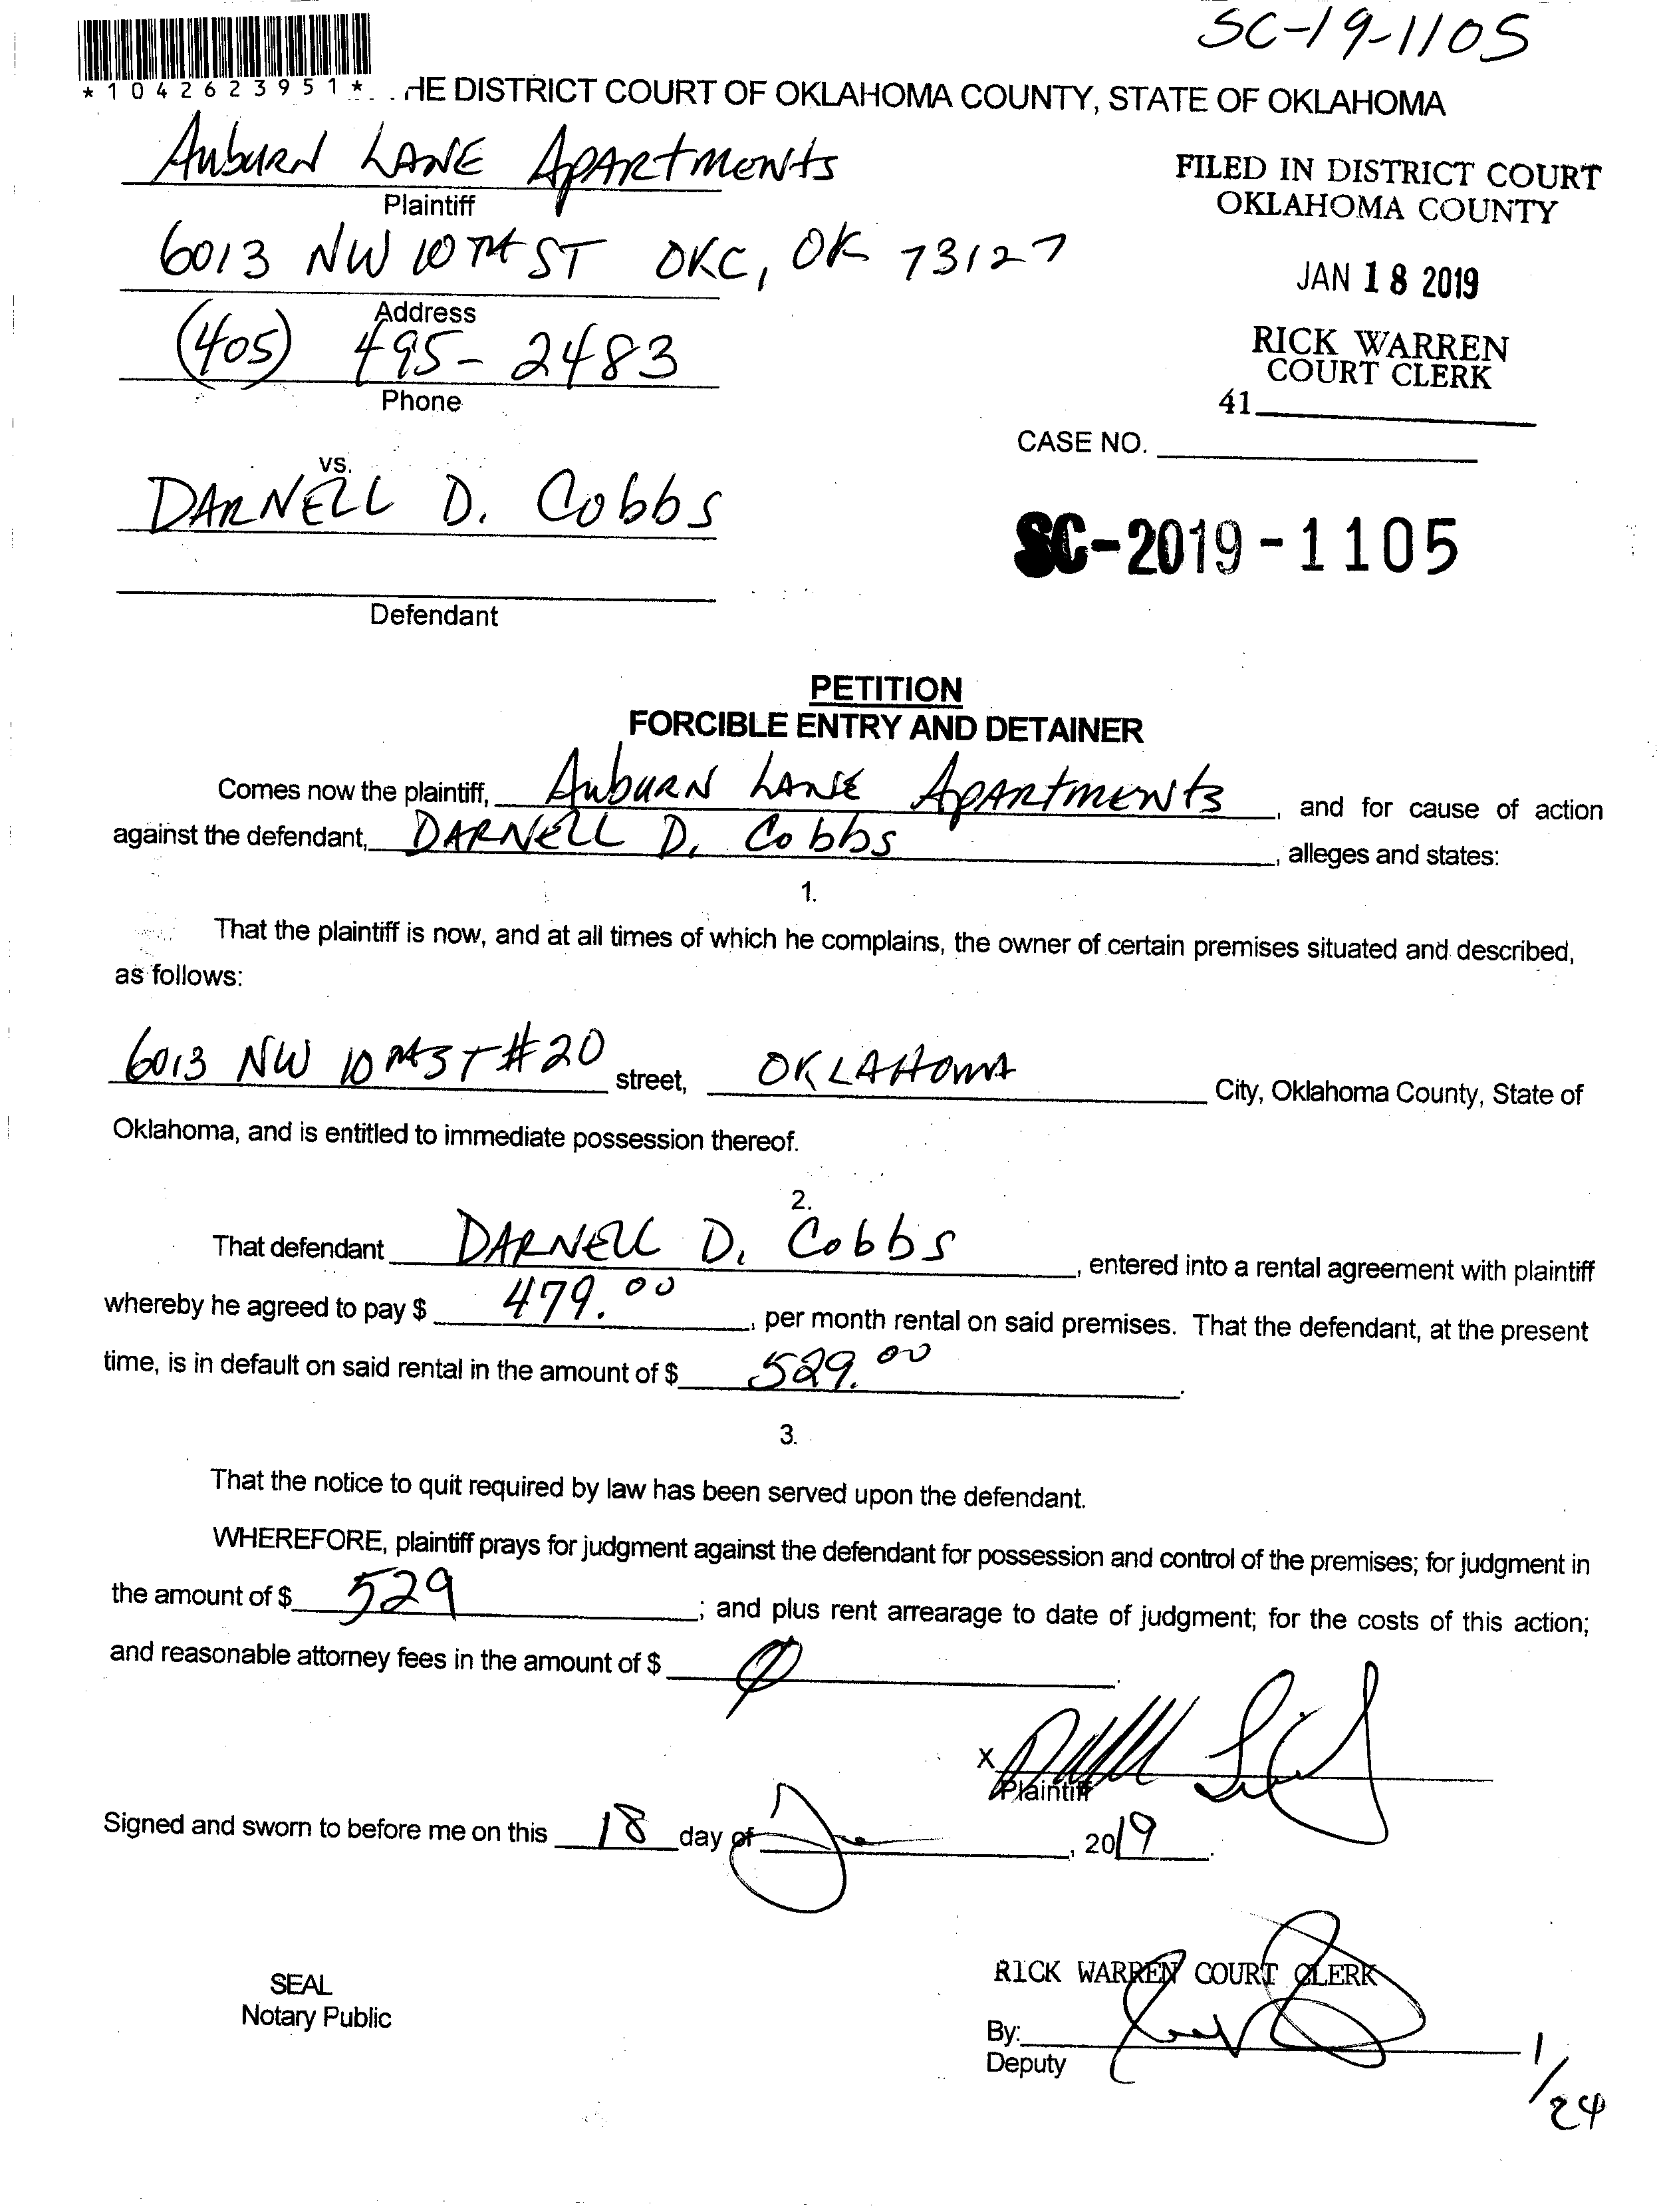 SC-19-1105
*1042623951*
HE DISTRICT COURT OF OKLAHOMA COUNTY, STATE OF OKLAHOMA
Auburn LANE Apartments
Plaintiff
FILED IN DISTRICT COURT
OKLAHOMA COUNTY
6013 NW 10TH ST OKC, OK 73127
Address
JAN 18 2019
(405) 495-2483
Phone
RICK WARREN
COURT CLERK
41
CASE NO.
vs.
DARNELL D. Cobbs
SC-2019-1105
Defendant
PETITION
FORCIBLE ENTRY AND DETAINER
Comes now the plaintiff, Auburn LANE Apartments, and for cause of action
against the defendant, DARNELL D. Cobbs, alleges and states:
1.
That the plaintiff is now, and at all times of which he complains, the owner of certain premises situated and described,
as follows:
6013 NW 10TH ST #20 street, OKLAHOMA City, Oklahoma County, State of
Oklahoma, and is entitled to immediate possession thereof.
2.
That defendant DARNELL D. Cobbs, entered into a rental agreement with plaintiff
whereby he agreed to pay $ 479.00, per month rental on said premises. That the defendant, at the present
time, is in default on said rental in the amount of $ 529.00.
3.
That the notice to quit required by law has been served upon the defendant.
WHEREFORE, plaintiff prays for judgment against the defendant for possession and control of the premises; for judgment in
the amount of $ 529; and plus rent arrearage to date of judgment; for the costs of this action;
and reasonable attorney fees in the amount of $ Ø.
X
Plaintiff
Signed and sworn to before me on this 18 day of Jan, 2019.
RICK WARREN COURT CLERK
SEAL
Notary Public
By:
Deputy
1/24